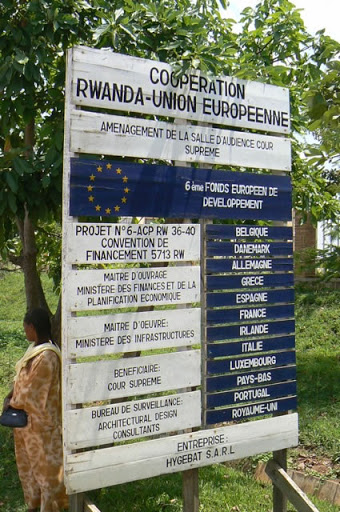 COOPERATION
RWANDA-UNION EUROPEENNE
AMENAGEMENT DE LA SALLE D'AUDIENCE COUR
SUPREME
6ème FONDS EUROPEEN DE
DEVELOPPEMENT
PROJET N° 6-ACP RW 36-40
CONVENTION DE
FINANCEMENT 5713 RW
MAITRE D'OUVRAGE
MINISTERE DES FINANCES ET DE LA
PLANIFICATION ECONOMIQUE
MAITRE D'ŒUVRE:
MINISTERE DES INFRASTRUCTURES
BENEFICIAIRE:
COUR SUPREME
BUREAU DE SURVEILLANCE:
ARCHITECTURAL DESIGN
CONSULTANTS
BELGIQUE
DANEMARK
ALLEMAGNE
GRECE
ESPAGNE
FRANCE
IRLANDE
ITALIE
LUXEMBOURG
PAYS-BAS
PORTUGAL
ROYAUME-UNI
ENTREPRISE:
HYGEBAT S.A.R.L